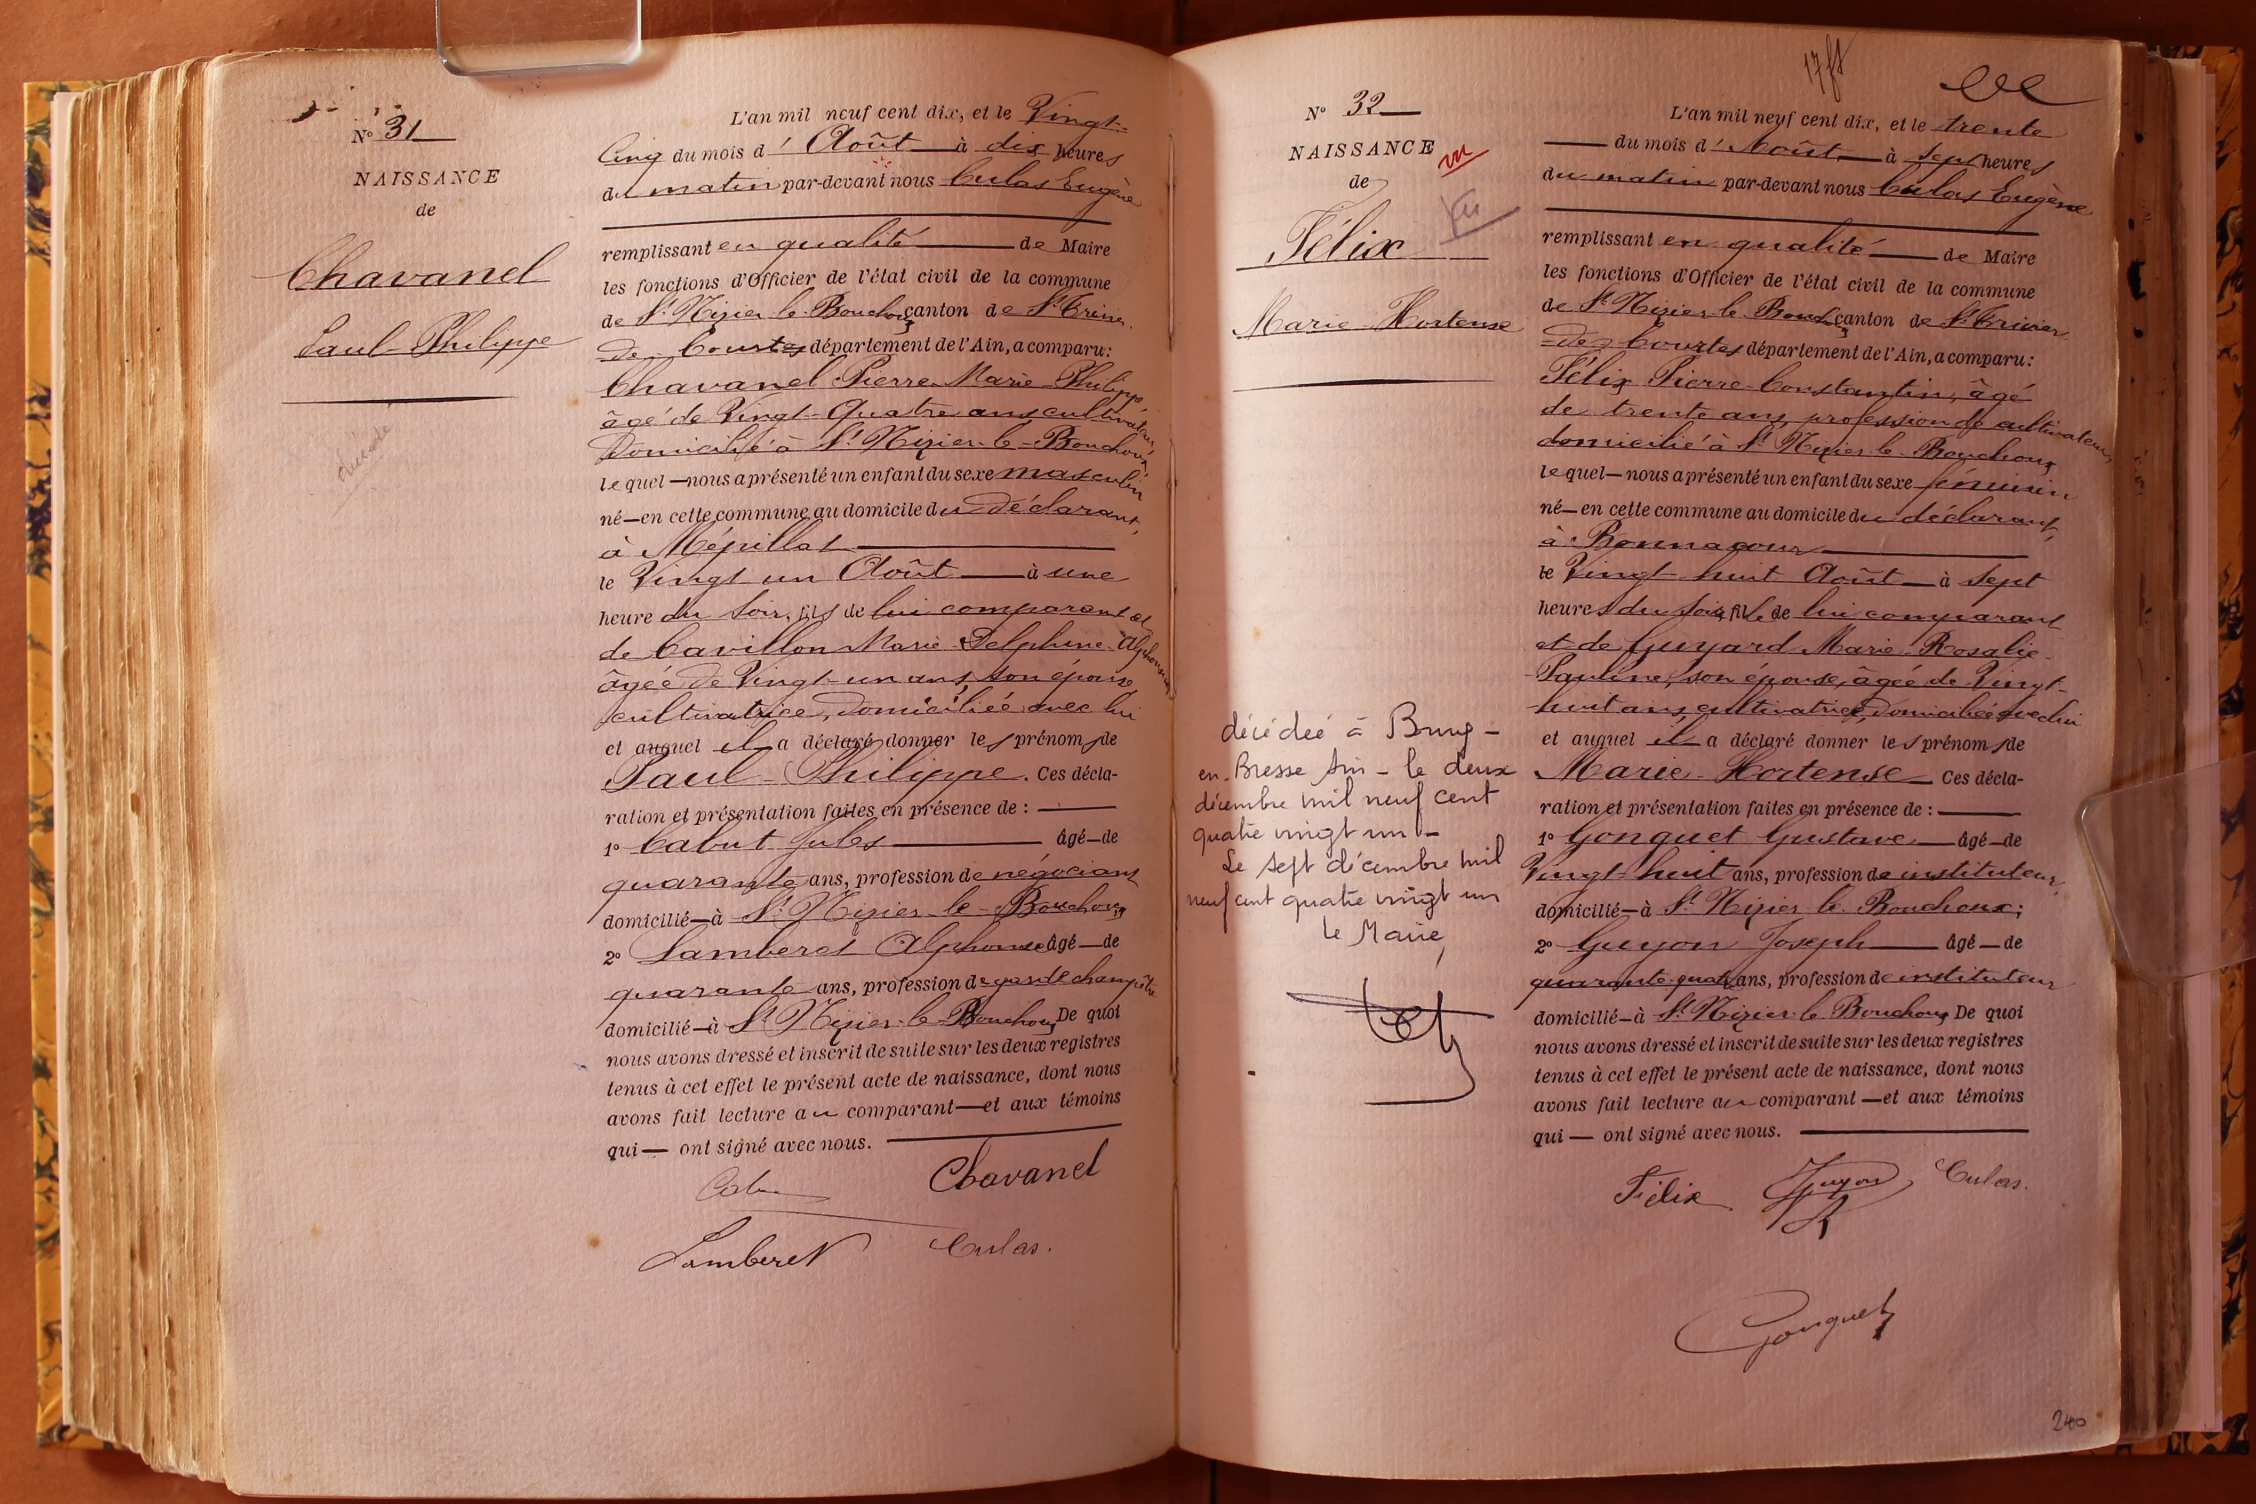 N° 31
NAISSANCE
de
Chavanel
Paul-Philippe
L'an mil neuf cent dix, et le Vingt-
Cinq du mois d'Août à dix heures
du matin par-devant nous Culas Eugène
remplissant en qualité de Maire
les fonctions d'Officier de l'état civil de la commune
de St Nizier-le-Bouchoux canton de St Trivier-
de-Courtes département de l'Ain, a comparu:
Chavanel Pierre-Marie-Philippe
âgé de Vingt-Quatre ans cultivateur,
Domicilié à St Nizier-le-Bouchoux,
lequel nous a présenté un enfant du sexe masculin
né en cette commune au domicile du Déclarant,
à Mépillat
le Vingt un Août à une
heure du soir, fils de lui comparant et
de Cavillon Marie Delphine Alphonsine
âgée de Vingt-un ans, son épouse,
cultivatrice, domiciliée avec lui
et auquel il a déclaré donner les prénoms de
Paul-Philippe. Ces décla-
ration et présentation faites en présence de :
1° Cabut Jules âgé de
quarante ans, profession de négociant
domicilié à St Nizier-le-Bouchoux
2° Lamberet Alphonse âgé de
quarante ans, profession de garde champêtre
domicilié à St Nizier-le-Bouchoux De quoi
nous avons dressé et inscrit de suite sur les deux registres
tenus à cet effet le présent acte de naissance, dont nous
avons fait lecture au comparant et aux témoins
qui ont signé avec nous.
Chavanel
Lamberet Culas.
N° 32
NAISSANCE
de
vu
vu
Félix
Marie-Hortense
décédée à Bourg-
en-Bresse Ain - le deux
décembre mil neuf cent
quatre vingt un -
Le sept décembre mil
neuf cent quatre vingt un
Le Maire,
L'an mil neuf cent dix, et le trente
du mois d'Août à sept heures
du matin par-devant nous Culas Eugène
remplissant en qualité de Maire
les fonctions d'Officier de l'état civil de la commune
de St Nizier-le-Bouchoux canton de St Trivier
-de-Courtes département de l'Ain, a comparu:
Félix Pierre-Constantin, âgé
de trente ans, profession de cultivateur,
domicilié à St Nizier-le-Bouchoux
lequel nous a présenté un enfant du sexe féminin
né en cette commune au domicile du déclarant,
à Bonnacour
le Vingt-huit Août à sept
heures du soir, fille de lui comparant
et de Guyard Marie-Rosalie-
Pauline, son épouse, âgée de Vingt-
huit ans, cultivatrice, domiciliée avec lui
et auquel il a déclaré donner les prénoms de
Marie-Hortense Ces décla-
ration et présentation faites en présence de :
1° Gonguet Gustave âgé de
Vingt-huit ans, profession de instituteur,
domicilié à St Nizier-le-Bouchoux;
2° Guyon Joseph âgé de
quarante-quatre ans, profession de instituteur
domicilié à St Nizier-le-Bouchoux De quoi
nous avons dressé et inscrit de suite sur les deux registres
tenus à cet effet le présent acte de naissance, dont nous
avons fait lecture au comparant et aux témoins
qui ont signé avec nous.
Félix Guyon Culas.
Gonguet
240